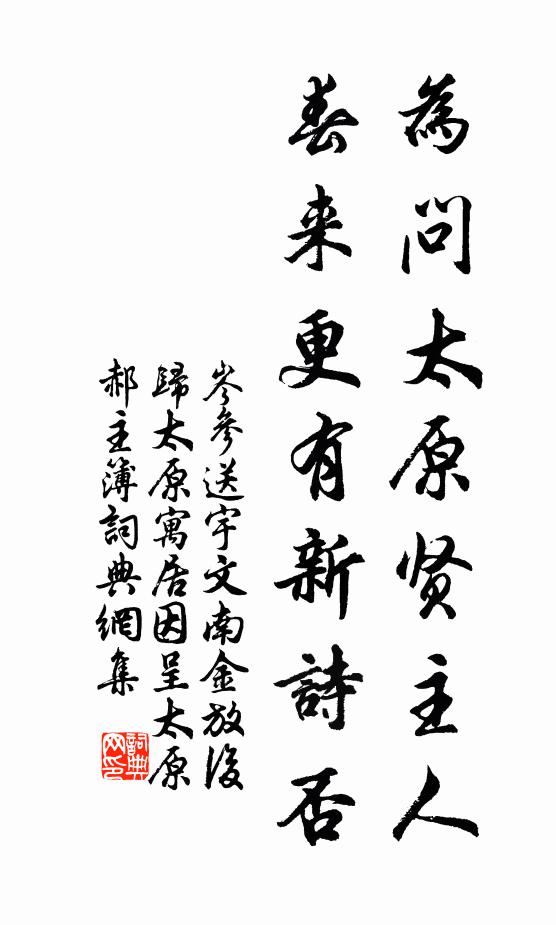 為問太原贤主人
春来更有新詩否
岑參送宇文南金放後
歸太原寓居因呈太原
郝主簿詞典網集
詞典网印